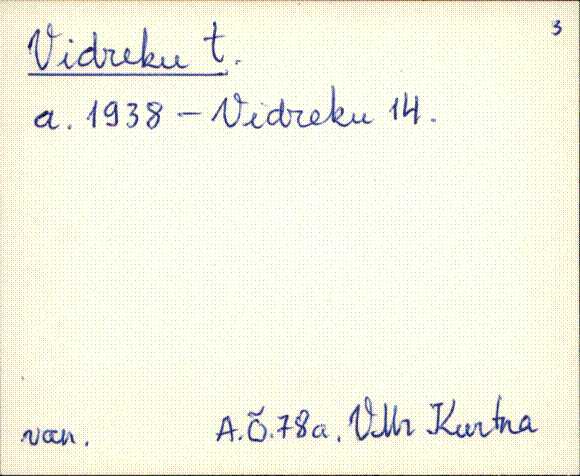 3
Vidreku t.
a. 1938 – Vidreku 14.
van. A.Õ.78a. VMr Kurtna